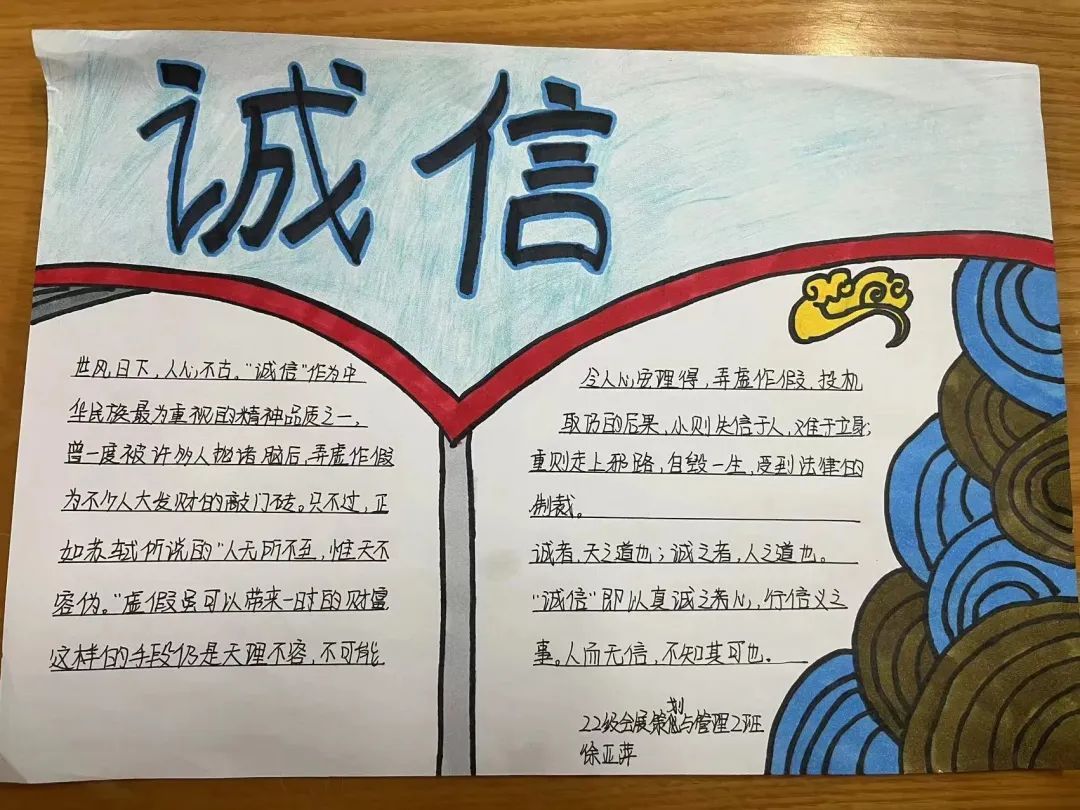 诚信
世风日下，人心不古。“诚信”作为中
华民族最为重视的精神品质之一，
曾一度被许多人抛诸脑后，弄虚作假
为不少人大发财的敲门砖。只不过，正
如苏轼所说的“人无所不至，惟天不
容伪。”虚假虽可以带来一时的财富
这样的手段仍是天理不容，不可能
令人心安理得，弄虚作假、投机
取巧的后果，小则失信于人，难于立身；
重则走上邪路，自毁一生，受到法律的
制裁。
诚者，天之道也；诚之者，人之道也。
“诚信”即以真诚之心，行信义之
事。人而无信，不知其可也。
22级会展策划与管理2班
徐亚萍